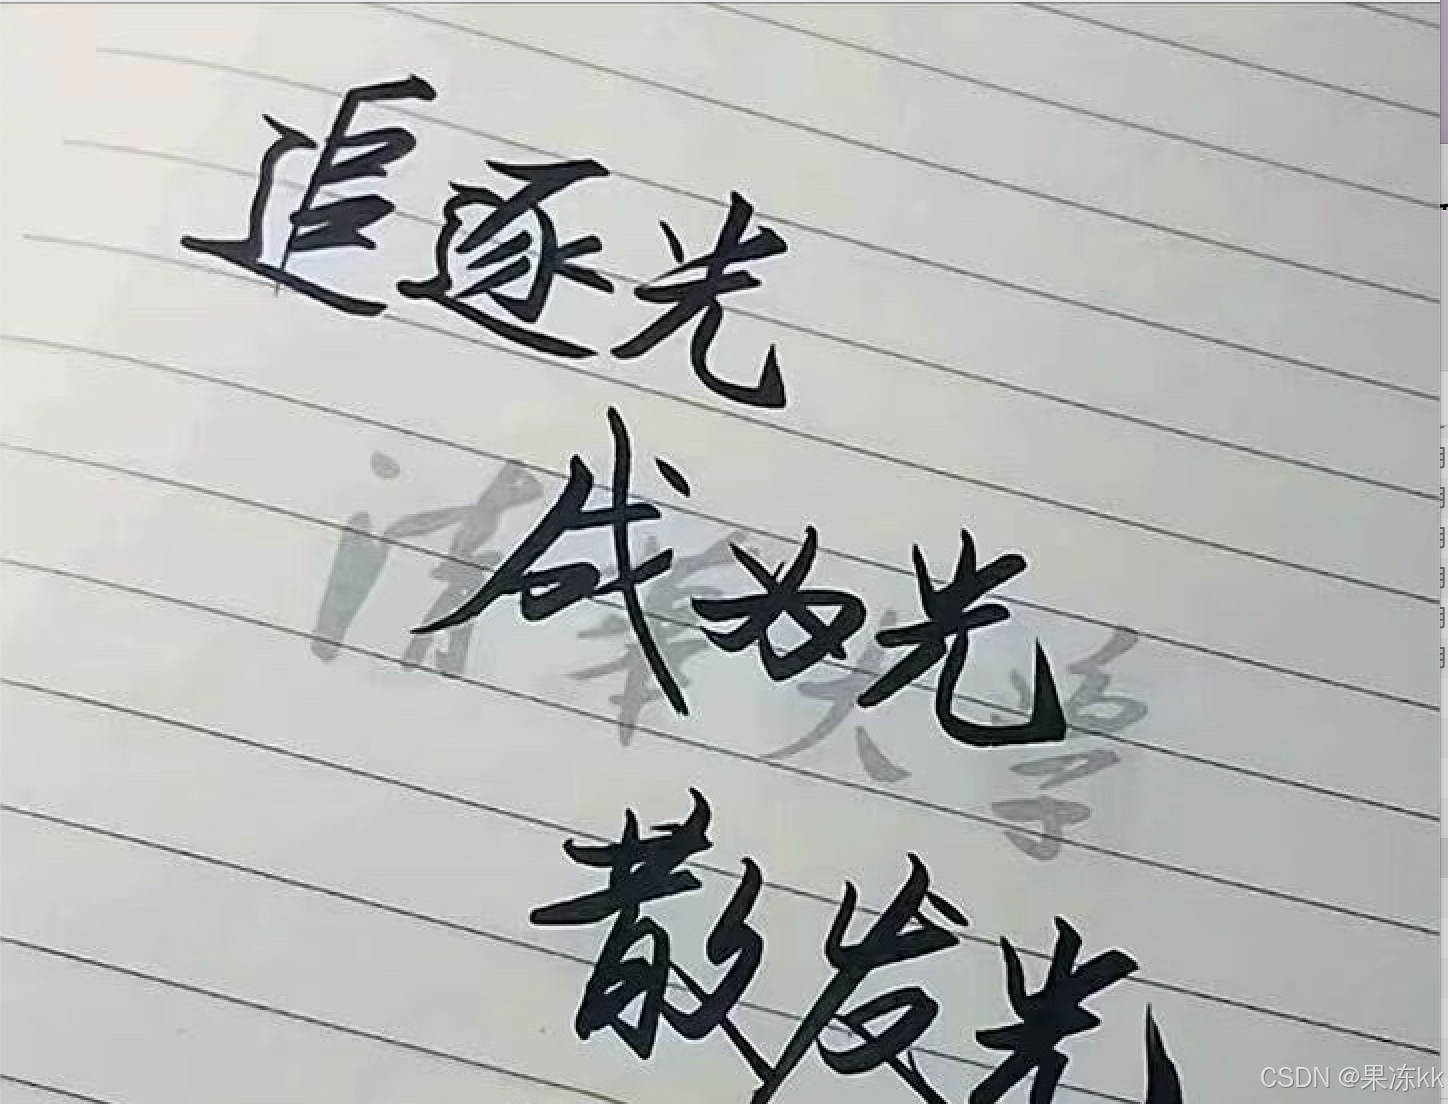 追逐光
成为光
清华大学
散发光
CSDN @果冻kk